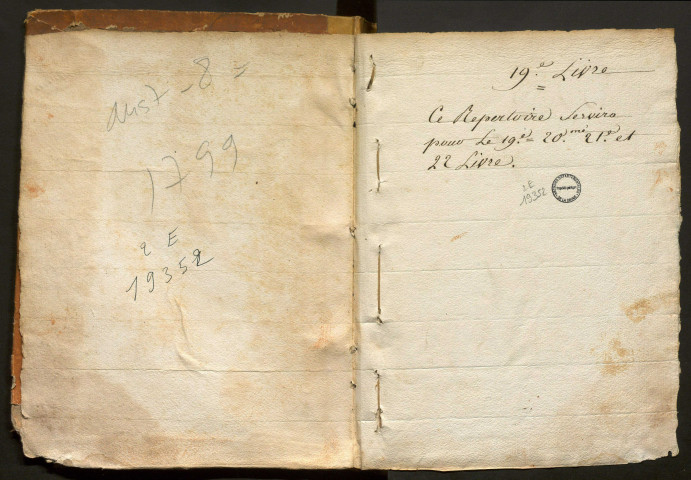 8 =
1799
2 E
19352
19.e Livre
=
Ce Repertoire Servira
pour le 19.e = 20.me 21.e et
22 Livre.
2 E
19352